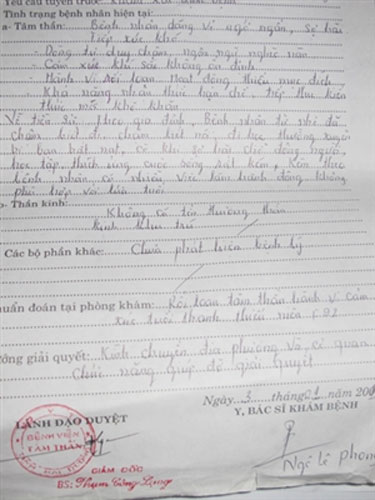 Yêu cầu tuyến trước:
Tình trạng bệnh nhân hiện tại:
a- Tâm thần: Bệnh nhân dáng vẻ ngơ ngẩn, sợ hãi
Tiếp xúc khó
- Dòng tư duy chậm, ngôn ngữ nghèo nàn
- Cảm xúc khờ sâu không ổn định
- Hành vi rối loạn hoạt động thiếu mục đích
- Khả năng nhận thức hạn chế, tiếp thu kiến
thức mới khó khăn
Về tiền sử, theo gia đình, Bệnh nhân từ nhỏ đã
chậm biết đi, chậm biết nói, đi học thường xuyên
bị bạn bắt nạt, có khi sợ hãi chỗ đông người
học tập, thích ứng cuộc sống rất kém, kèm theo
bệnh nhân có nhiều việc làm hành động không
phù hợp với lứa tuổi
b- Thần kinh:
Không có tổn thương thần
kinh khu trú
Các bộ phần khác: Chưa phát hiện bệnh lý
chuẩn đoán tại phòng khám: Rối loạn tâm thần hành vi cảm
xúc tuổi thanh thiếu niên F92
Hướng giải quyết: Kính chuyển địa phương và cơ quan
chức năng giúp đỡ giải quyết
Ngày 3 tháng 1 năm
LÃNH ĐẠO DUYỆT
Y, BÁC SĨ KHÁM BỆNH
BỆNH VIỆN
TÂM THẦN
GIÁM ĐỐC
BS: Phạm Công
Ngô Lê Phong